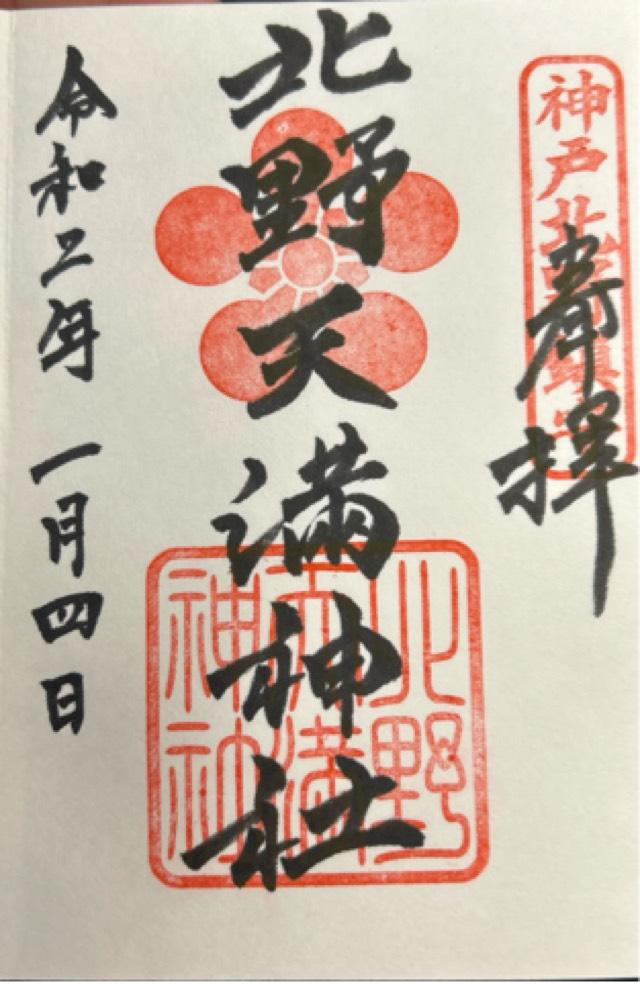 奉拝
神戸北野鎮守
北野天満神社
北野天満神社
令和二年 一月四日